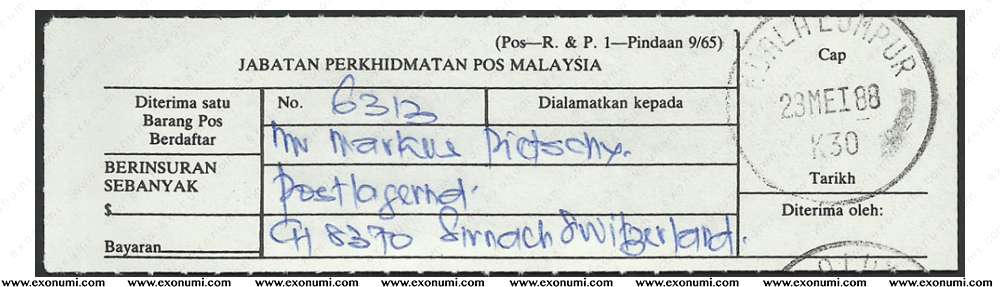 (Pos—R. & P. 1—Pindaan 9/65)
JABATAN PERKHIDMATAN POS MALAYSIA
Diterima satu
Barang Pos
Berdaftar
No. 6313
Dialamatkan kepada
Mr Markus Pietschy.
Postlagernd.
CH 8370 Sirnach Switzerland.
BERINSURAN
SEBANYAK
$
Bayaran
Cap
KUALA LUMPUR
23 MEI 88
K30
Tarikh
Diterima oleh:
www.exonumi.com www.exonumi.com www.exonumi.com www.exonumi.com www.exonumi.com www.exonumi.com www.exonumi.com www.exonumi.com